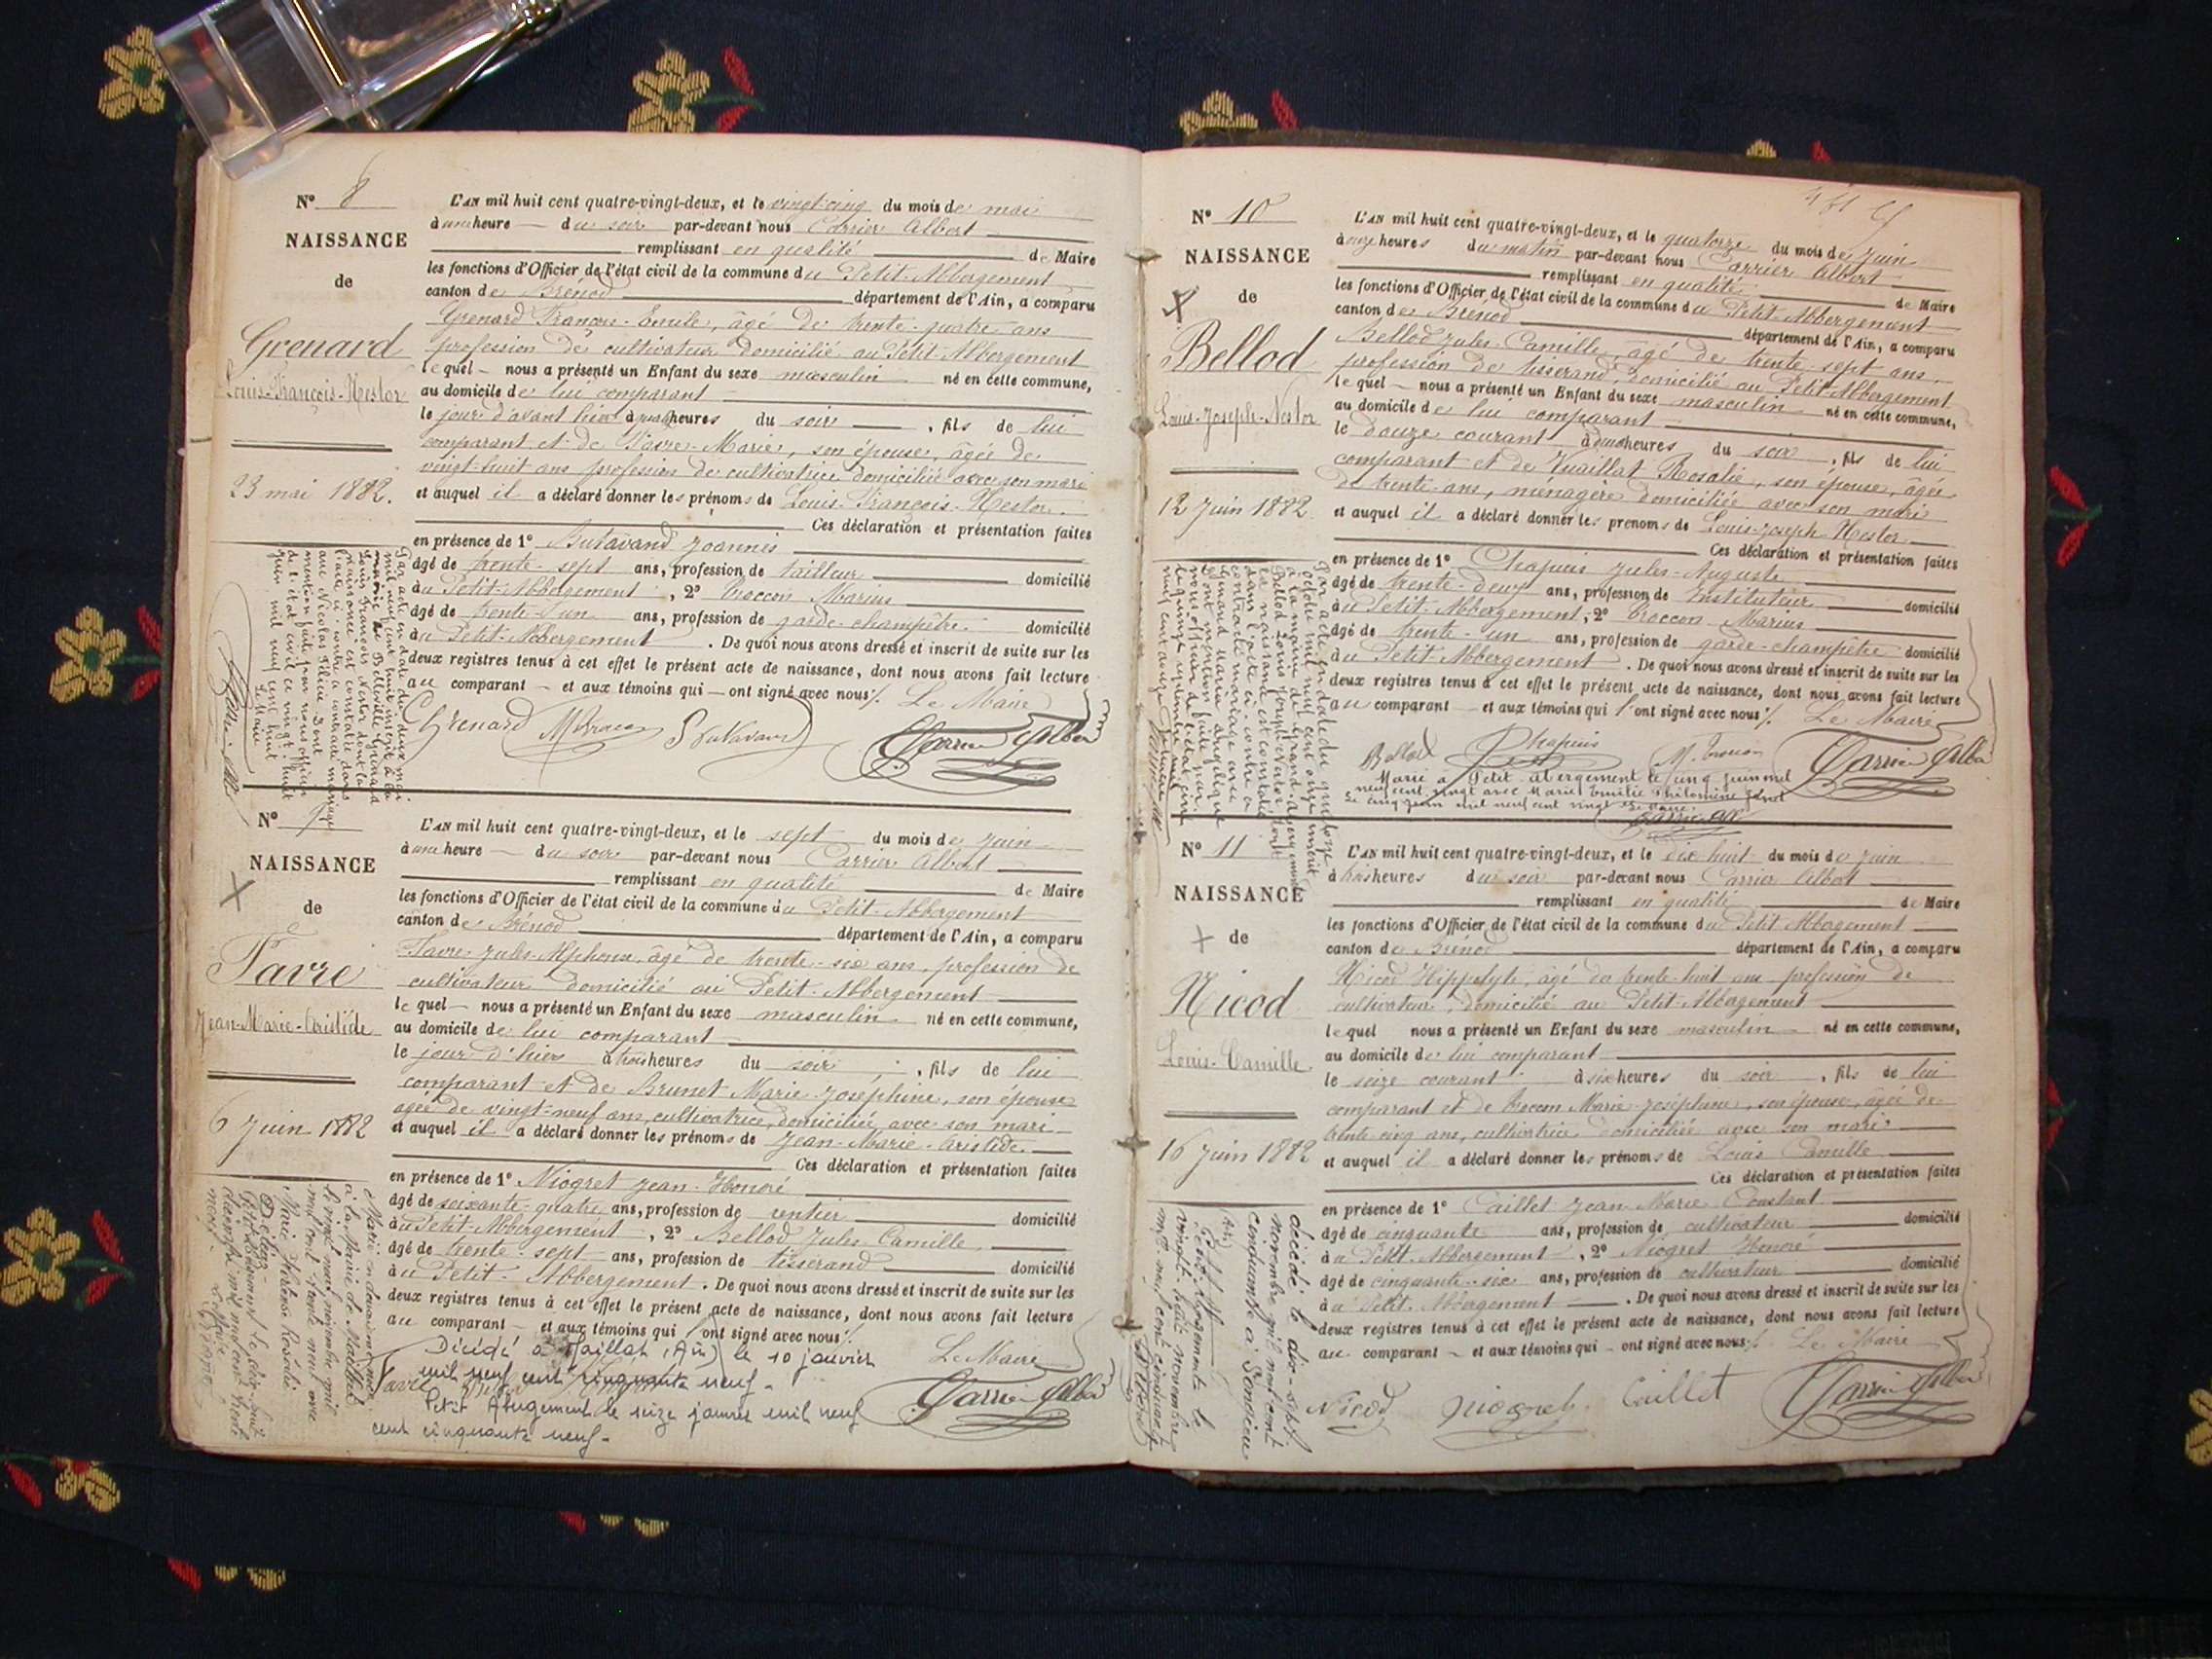 N° 8
NAISSANCE
de
Grenard
Louis-François-Nestor
23 mai 1882.
L'AN mil huit cent quatre-vingt-deux, et le vingt-cinq du mois de mai
à une heure du soir par-devant nous Carrier Albert
remplissant en qualité de Maire
les fonctions d'Officier de l'état civil de la commune du Petit-Abbergement
canton de Brénod département de l'Ain, a comparu
Grenard François-Emile, âgé de trente-quatre ans
profession de cultivateur domicilié au Petit-Abbergement
lequel nous a présenté un Enfant du sexe masculin né en cette commune,
au domicile de lui comparant
le jour d'avant hier à heures du soir, fils de lui
comparant et de Favre Marie, son épouse, âgée de
vingt-huit ans profession de cultivatrice domiciliée avec son mari
et auquel il a déclaré donner les prénoms de Louis-François-Nestor.
Ces déclaration et présentation faites
en présence de 1° Butavand Joannès
âgé de trente-sept ans, profession de tailleur domicilié
au Petit-Abbergement, 2° Broccon Marius
âgé de trente-un ans, profession de garde-champêtre domicilié
au Petit-Abbergement. De quoi nous avons dressé et inscrit de suite sur les
deux registres tenus à cet effet le présent acte de naissance, dont nous avons fait lecture
au comparant et aux témoins qui ont signé avec nous. Le Maire
Grenard Butavand Carrier Albert
Par acte en date du deux mai
mil neuf cent huit inscrit à la
mairie de Belleville Grenard
Louis François Nestor dont la
naissance est constatée dans
l'acte ci-contre a contracté mariage
avec Nicolas Félicie dont
mention faite par nous officier
de l'état civil ce vingt-huit
juin mil neuf cent huit
Le Maire
N° 9
NAISSANCE
de
Favre
Jean-Marie-Aristide
6 Juin 1882
L'AN mil huit cent quatre-vingt-deux, et le sept du mois de juin
à une heure du soir par-devant nous Carrier Albert
remplissant en qualité de Maire
les fonctions d'Officier de l'état civil de la commune du Petit-Abbergement
canton de Brénod département de l'Ain, a comparu
Favre Jules-Alphonse, âgé de trente-six ans, profession de
cultivateur domicilié au Petit-Abbergement
lequel nous a présenté un Enfant du sexe masculin né en cette commune,
au domicile de lui comparant
le jour d'hier à trois heures du soir, fils de lui
comparant et de Brunet Marie Joséphine, son épouse
âgée de vingt-neuf ans, cultivatrice, domiciliée avec son mari
et auquel il a déclaré donner les prénoms de Jean-Marie-Aristide.
Ces déclaration et présentation faites
en présence de 1° Niogret Jean-Honoré
âgé de soixante-quatre ans, profession de rentier domicilié
au Petit-Abbergement, 2° Bellod Jules Camille
âgé de trente-sept ans, profession de tisserand domicilié
au Petit-Abbergement. De quoi nous avons dressé et inscrit de suite sur les
deux registres tenus à cet effet le présent acte de naissance, dont nous avons fait lecture
au comparant et aux témoins qui ont signé avec nous.
Le Maire
Décédé à Maillat (Ain) le 10 janvier
mil neuf cent cinquante neuf.
Petit Abergement le seize janvier mil neuf
cent cinquante neuf.
Favre Carrier Albert
Marié en deuxième noce
à la Mairie de
le vingt neuf novembre mil
neuf cent trente neuf avec
Marie Hortense Rosalie
N° 10
NAISSANCE
de
Bellod
Louis-Joseph-Nestor
12 Juin 1882
L'AN mil huit cent quatre-vingt-deux, et le quatorze du mois de juin
à onze heures du matin par-devant nous Carrier Albert
remplissant en qualité de Maire
les fonctions d'Officier de l'état civil de la commune du Petit-Abbergement
canton de Brénod département de l'Ain, a comparu
Bellod Jules-Camille, âgé de trente-sept ans,
profession de tisserand, domicilié au Petit-Abbergement
lequel nous a présenté un Enfant du sexe masculin né en cette commune,
au domicile de lui comparant
le douze courant à heures du soir, fils de lui
comparant et de Vuaillat Rosalie, son épouse, âgée
de trente-ans, ménagère domiciliée avec son mari
et auquel il a déclaré donner les prénoms de Louis-Joseph-Nestor
Ces déclaration et présentation faites
en présence de 1° Chapuis Jules-Auguste
âgé de trente-deux ans, profession de Instituteur domicilié
au Petit-Abbergement, 2° Broccon Marius
âgé de trente-un ans, profession de garde-champêtre domicilié
au Petit-Abbergement. De quoi nous avons dressé et inscrit de suite sur les
deux registres tenus à cet effet le présent acte de naissance, dont nous avons fait lecture
au comparant et aux témoins qui l'ont signé avec nous. Le Maire
Bellod Chapuis Carrier Albert
Marié à Petit-abergement le cinq juin mil
neuf cent vingt avec Marie Emilie Philomène
Le cinq juin mil neuf cent vingt Le Maire.
N° 11
NAISSANCE
de
Nicod
Louis-Camille
16 Juin 1882
L'AN mil huit cent quatre-vingt-deux, et le dix huit du mois de juin
à trois heures du soir par-devant nous Carrier Albert
remplissant en qualité de Maire
les fonctions d'Officier de l'état civil de la commune du Petit Abbergement
canton de Brénod département de l'Ain, a comparu
Nicod Hippolyte, âgé de trente-huit ans profession de
cultivateur, domicilié au Petit-Abbergement
lequel nous a présenté un Enfant du sexe masculin né en cette commune,
au domicile de lui comparant
le seize courant à six heures du soir, fils de lui
comparant et de Broccon Marie-Joséphine, son épouse, âgée de
trente cinq ans, cultivatrice domiciliée avec son mari
et auquel il a déclaré donner les prénoms de Louis Camille
Ces déclaration et présentation faites
en présence de 1° Caillet Jean Marie Constant
âgé de cinquante ans, profession de cultivateur domicilié
au Petit-Abbergement, 2° Niogret Honoré
âgé de cinquante-six ans, profession de cultivateur domicilié
au Petit-Abbergement. De quoi nous avons dressé et inscrit de suite sur les
deux registres tenus à cet effet le présent acte de naissance, dont nous avons fait lecture
au comparant et aux témoins qui ont signé avec nous. Le Maire
Nicod Niogret Caillet Carrier Albert
décédé le dix-sept
novembre mil neuf cent
cinquante à
(Ain)
Petit Abergement le
vingt-huit novembre
mil neuf cent cinquante